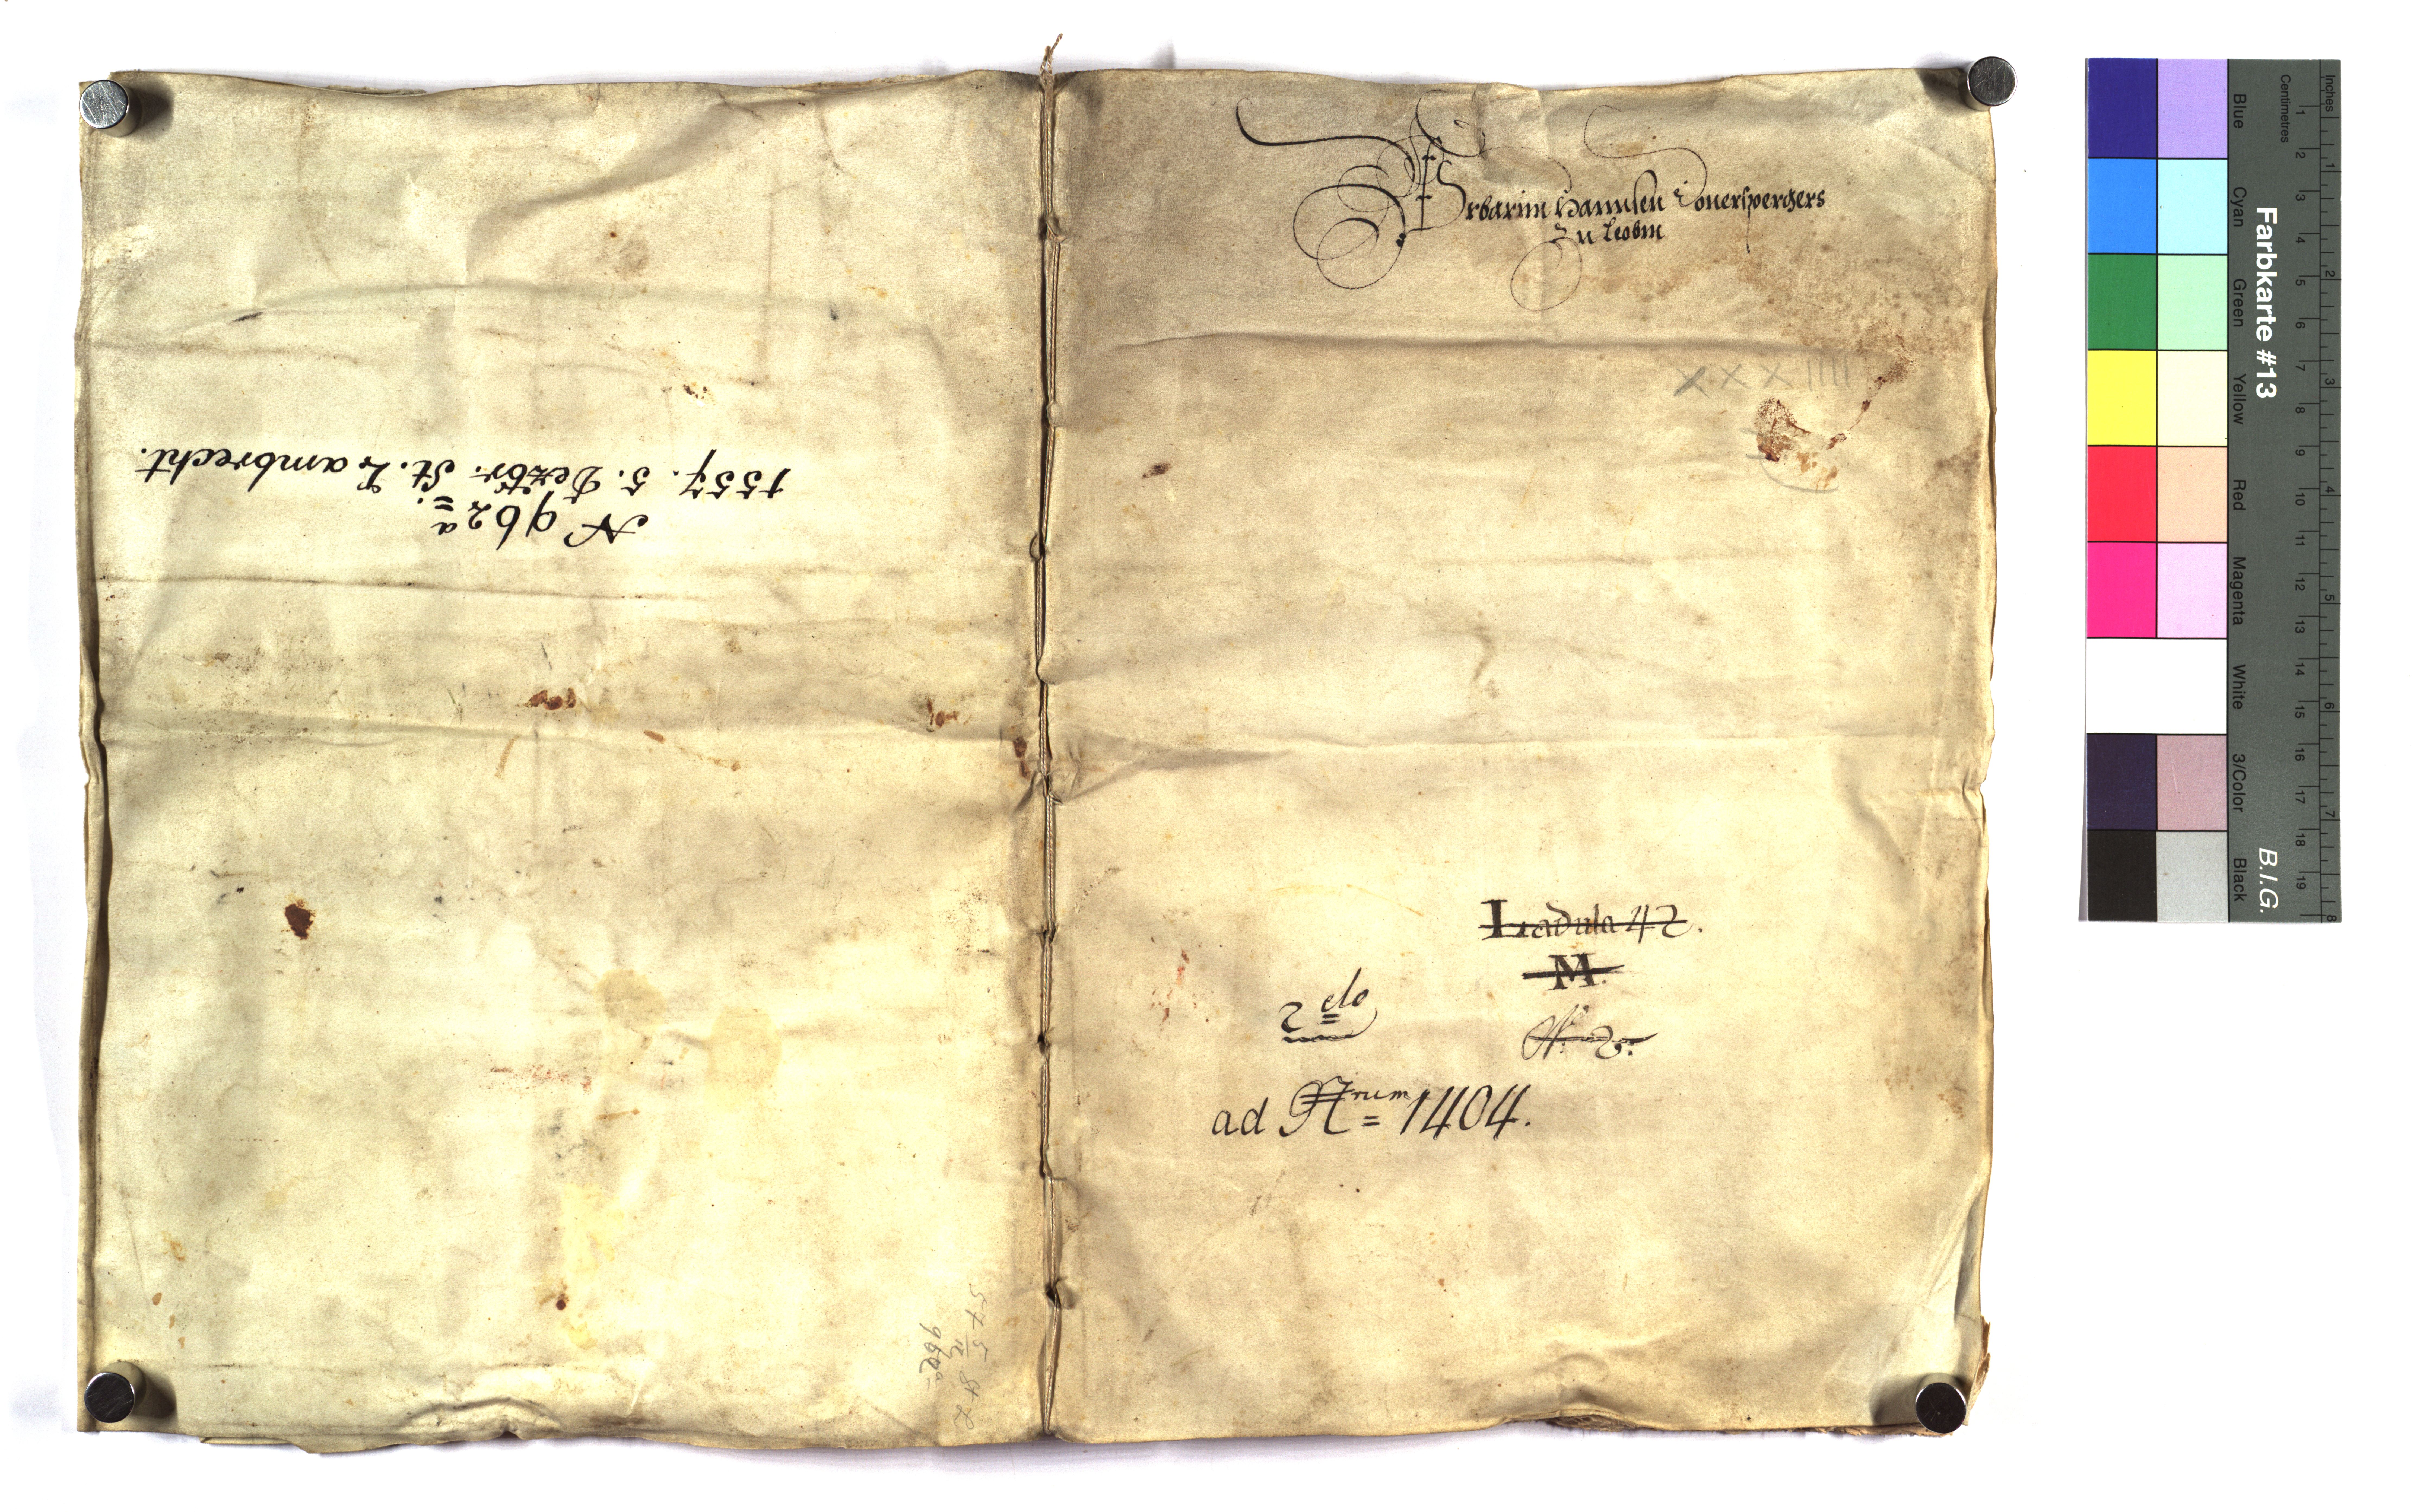 1557. 5. Dezbr. St. Lambrecht.
N 962a.
Urbarim Hannsen Donerspergers
zu Leobm
XXXIIII
Ladula 42.
M.
N. 2.
2do
ad Nrum 1404.
57 5/12 St L
962a
Inches
Centimetres
Farbkarte #13
B.I.G.
Blue
Cyan
Green
Yellow
Red
Magenta
White
3/Color
Black
1 2 3 4 5 6 7 8 9 10 11 12 13 14 15 16 17 18 19
1 2 3 4 5 6 7 8